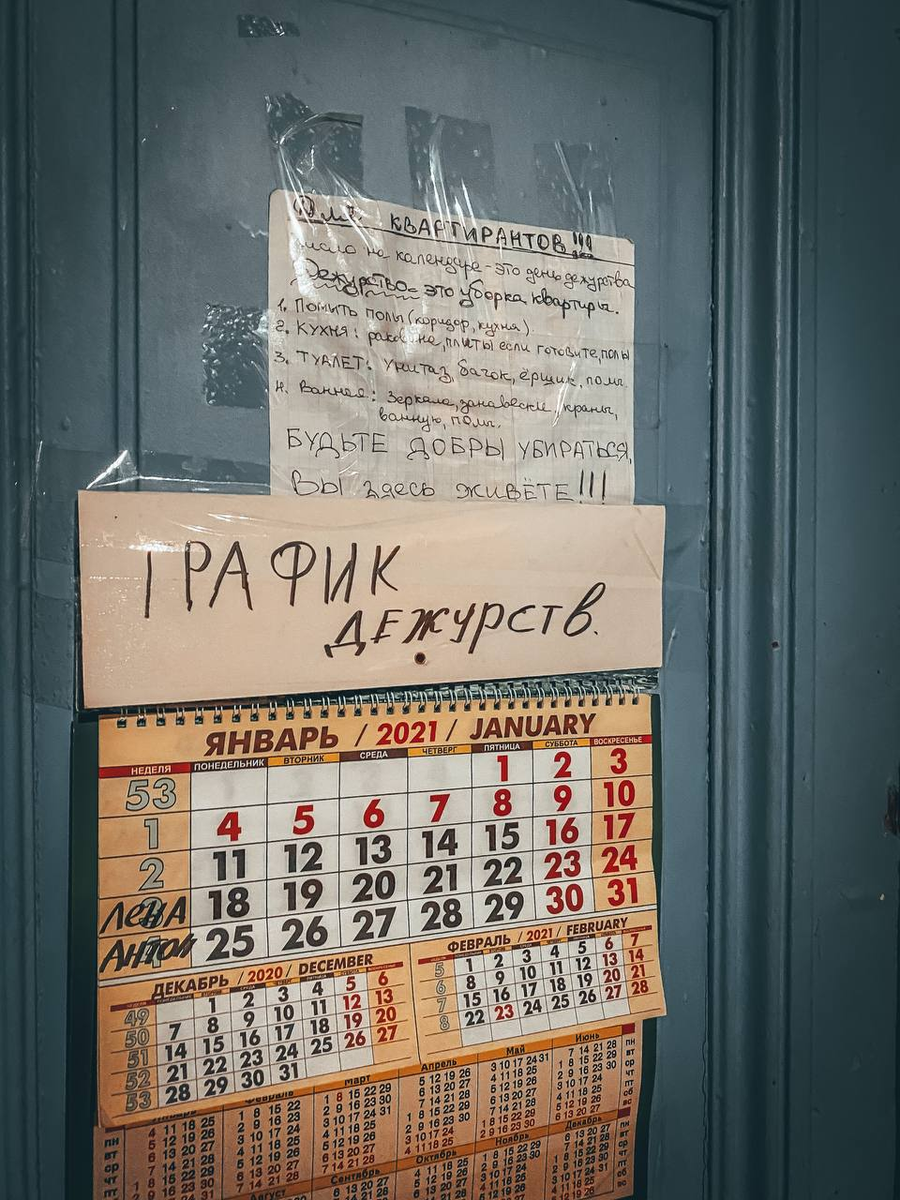 Для КВАРТИРАНТОВ!!!
число на календаре - это день дежурства
Дежурство - это уборка квартиры.
1. Помыть полы (коридор, кухня).
2. КУХНЯ: раковине, плиты если готовите, полы
3. ТУАЛЕТ: унитаз, бачок, ёршик, полы.
4. Ванная: зеркало, занавески, краны,
ванную, полы.
БУДЬТЕ ДОБРЫ УБИРАТЬСЯ,
ВЫ здесь ЖИВЁТЕ!!!
ГРАФИК
ДЕЖУРСТВ.
ЯНВАРЬ / 2021 / JANUARY
НЕДЕЛЯ ПОНЕДЕЛЬНИК ВТОРНИК СРЕДА ЧЕТВЕРГ ПЯТНИЦА СУББОТА ВОСКРЕСЕНЬЕ
53 1 2 3
1 4 5 6 7 8 9 10
2 11 12 13 14 15 16 17
ЛЕНА 18 19 20 21 22 23 24
АНТОН 25 26 27 28 29 30 31
ДЕКАБРЬ / 2020 / DECEMBER
49 1 2 3 4 5 6
50 7 8 9 10 11 12 13
51 14 15 16 17 18 19 20
52 21 22 23 24 25 26 27
53 28 29 30 31
ФЕВРАЛЬ / 2021 / FEBRUARY
5 1 2 3 4 5 6 7
6 8 9 10 11 12 13 14
7 15 16 17 18 19 20 21
8 22 23 24 25 26 27 28
Февраль Март Апрель Май Июнь
пн вт ср чт пт сб вс
Август Сентябрь Октябрь Ноябрь Декабрь